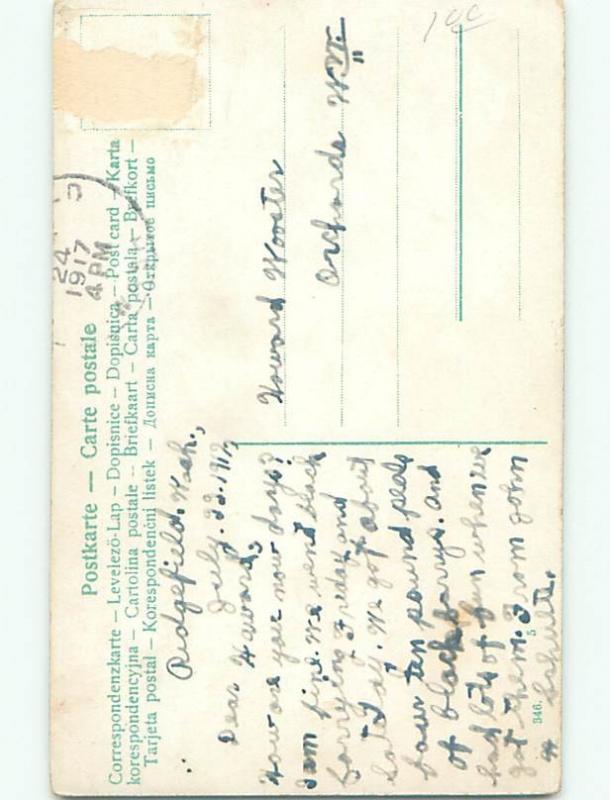 Postkarte — Carte postale
Correspondenzkarte — Levelező-Lap — Dopisnice — Dopisnica — Post card — Karta
korespondencyjna — Cartolina postale — Briefkaart — Carta postala — Brefkort —
Tarjeta postal — Korespondenční lístek — Дописна карта — Открытое письмо
24
1917
4 PM
100
Ridgefield, Wash.,
July. 23. 1917.
Dear Howard,
How are you now days?
I am fine. We went black
barrying Friday and
Satday. We got about
four ten pound peals
of blackbarrys. and
had lots of fun when we
got them. From John
Schulte.
346.
5
Howard Wooster
Orchards W.W.